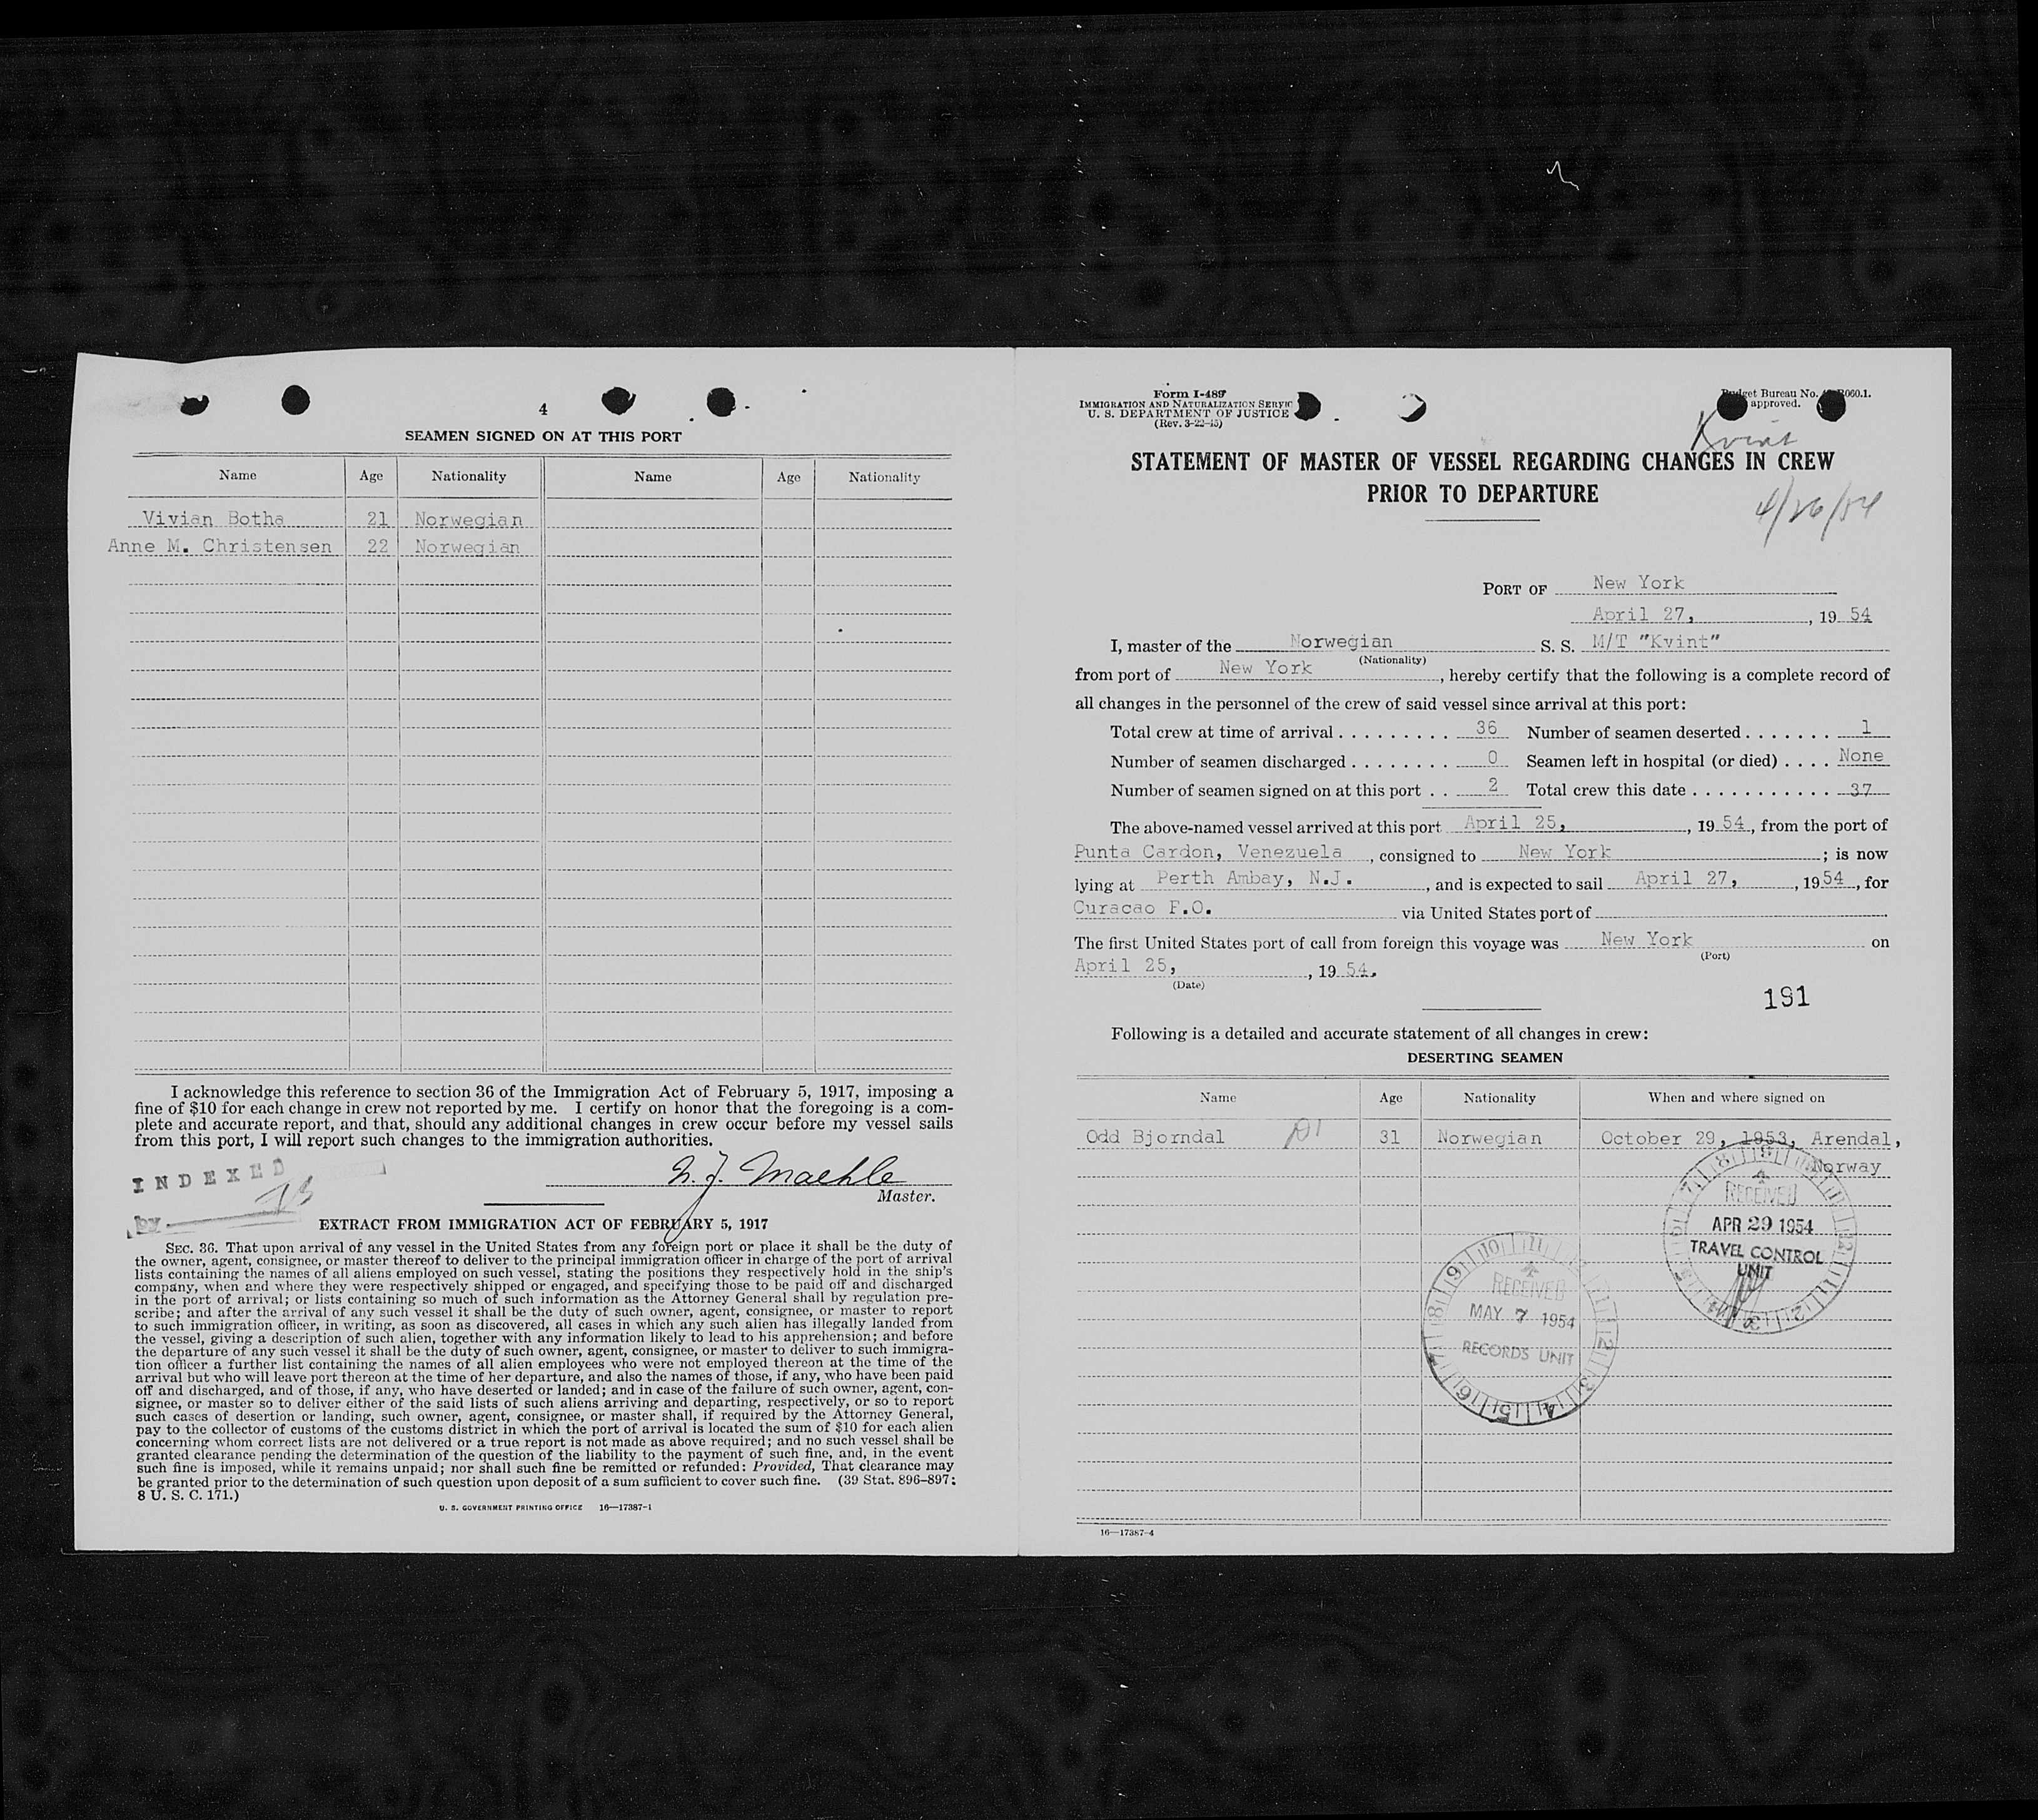 4
SEAMEN SIGNED ON AT THIS PORT
Name Age Nationality Name Age Nationality
Vivian Botha 21 Norwegian
Anne M. Christensen 22 Norwegian
I acknowledge this reference to section 36 of the Immigration Act of February 5, 1917, imposing a
fine of $10 for each change in crew not reported by me. I certify on honor that the foregoing is a com-
plete and accurate report, and that, should any additional changes in crew occur before my vessel sails
from this port, I will report such changes to the immigration authorities.
INDEXED
by
Maehle
Master.
EXTRACT FROM IMMIGRATION ACT OF FEBRUARY 5, 1917
SEC. 36. That upon arrival of any vessel in the United States from any foreign port or place it shall be the duty of
the owner, agent, consignee, or master thereof to deliver to the principal immigration officer in charge of the port of arrival
lists containing the names of all aliens employed on such vessel, stating the positions they respectively hold in the ship's
company, when and where they were respectively shipped or engaged, and specifying those to be paid off and discharged
in the port of arrival; or lists containing so much of such information as the Attorney General shall by regulation pre-
scribe; and after the arrival of any such vessel it shall be the duty of such owner, agent, consignee, or master to report
to such immigration officer, in writing, as soon as discovered, all cases in which any such alien has illegally landed from
the vessel, giving a description of such alien, together with any information likely to lead to his apprehension; and before
the departure of any such vessel it shall be the duty of such owner, agent, consignee, or master to deliver to such immigra-
tion officer a further list containing the names of all alien employees who were not employed thereon at the time of the
arrival but who will leave port thereon at the time of her departure, and also the names of those, if any, who have been paid
off and discharged, and of those, if any, who have deserted or landed; and in case of the failure of such owner, agent, con-
signee, or master so to deliver either of the said lists of such aliens arriving and departing, respectively, or so to report
such cases of desertion or landing, such owner, agent, consignee, or master shall, if required by the Attorney General,
pay to the collector of customs of the customs district in which the port of arrival is located the sum of $10 for each alien
concerning whom correct lists are not delivered or a true report is not made as above required; and no such vessel shall be
granted clearance pending the determination of the question of the liability to the payment of such fine, and, in the event
such fine is imposed, while it remains unpaid; nor shall such fine be remitted or refunded: Provided, That clearance may
be granted prior to the determination of such question upon deposit of a sum sufficient to cover such fine. (39 Stat. 896–897;
8 U. S. C. 171.)
U. S. GOVERNMENT PRINTING OFFICE 16—17387-1
Form I-489
IMMIGRATION AND NATURALIZATION
U. S. DEPARTMENT OF JUSTICE
(Rev. 3-22-45)
Bureau No.
approved.
Kvint
STATEMENT OF MASTER OF VESSEL REGARDING CHANGES IN CREW
PRIOR TO DEPARTURE
4/26/54
PORT OF New York
April 27, , 19 54
I, master of the Norwegian S. S. M/T "Kvint"
(Nationality)
from port of New York , hereby certify that the following is a complete record of
all changes in the personnel of the crew of said vessel since arrival at this port:
Total crew at time of arrival . . . . . . . . . 36 Number of seamen deserted . . . . . . . 1
Number of seamen discharged . . . . . . . . 0 Seamen left in hospital (or died) . . . . None
Number of seamen signed on at this port . . 2 Total crew this date . . . . . . . . . . . 37
The above-named vessel arrived at this port April 25, , 19 54 , from the port of
Punta Cardon, Venezuela , consigned to New York ; is now
lying at Perth Ambay, N.J. , and is expected to sail April 27, , 19 54 , for
Curacao F.O. via United States port of
The first United States port of call from foreign this voyage was New York on
(Port)
April 25, , 19 54.
(Date)
191
Following is a detailed and accurate statement of all changes in crew:
DESERTING SEAMEN
Name Age Nationality When and where signed on
Odd Bjorndal 31 Norwegian October 29, 1953, Arendal,
Norway
RECEIVED
APR 29 1954
TRAVEL CONTROL
UNIT
RECEIVED
MAY 7 1954
RECORDS UNIT
16—17387-4